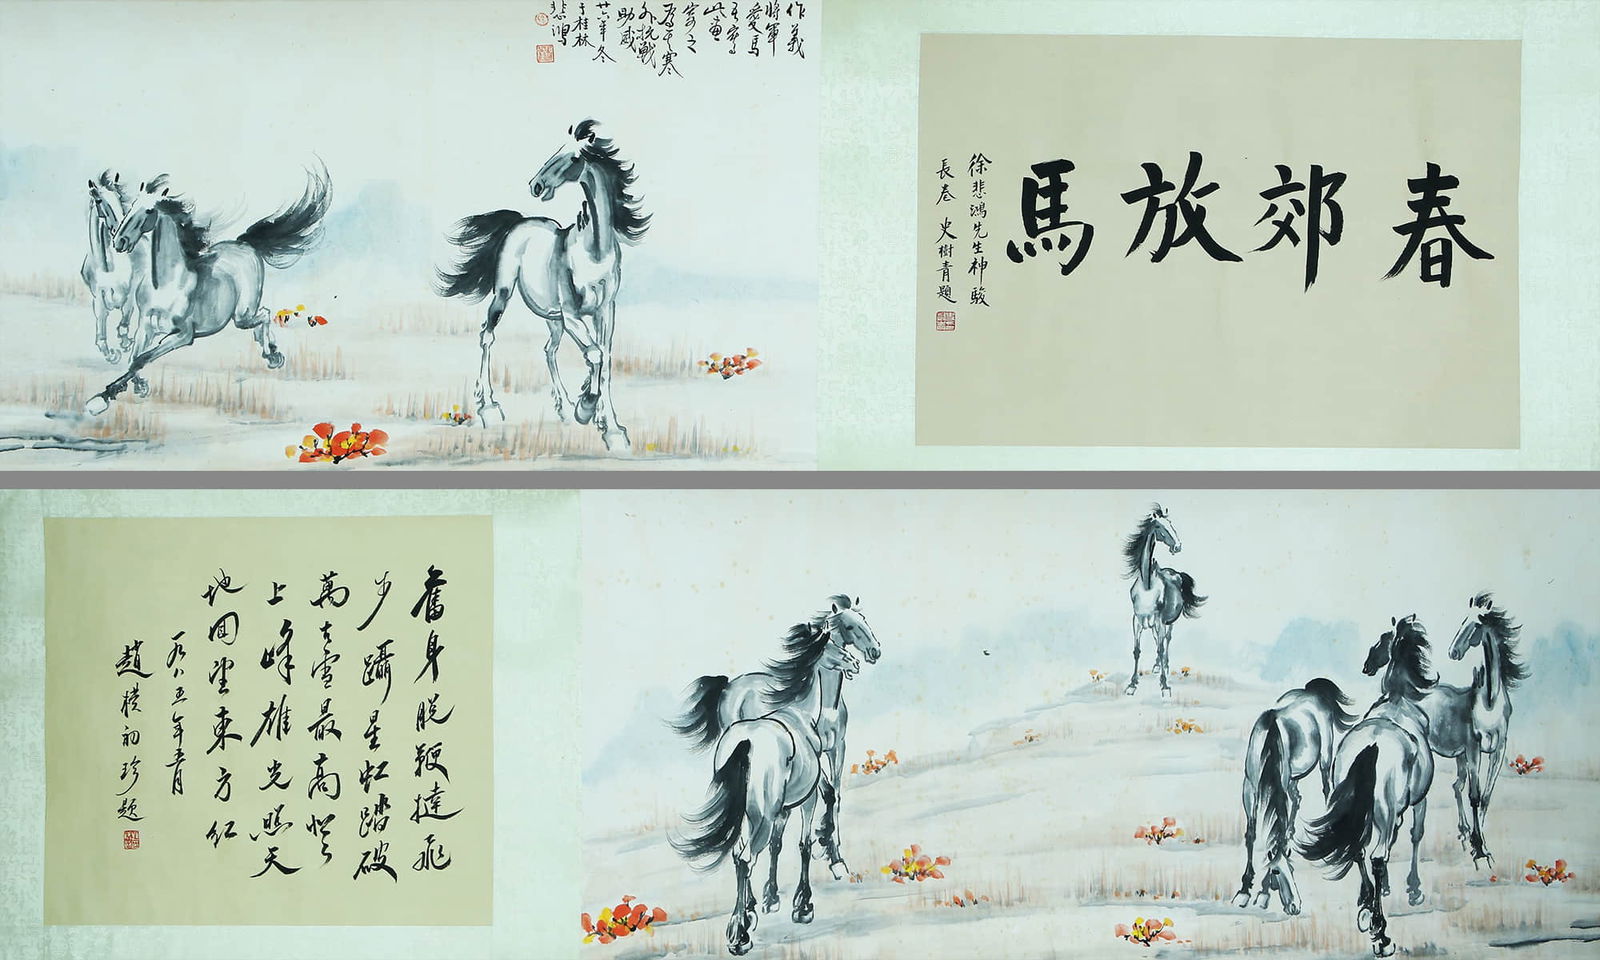 作義
將軍
愛馬
此畫
寄之
外抗戰
助威
廿六年冬
于桂林
悲鴻
春郊放馬
徐悲鴻先生神駿
長卷 史樹青題
奮身脫鞭撻飛
步躡星虹踏破
萬古雪最高登
上峰雄光照天
地回望東方紅
一九八五年五月
趙樸初珍題